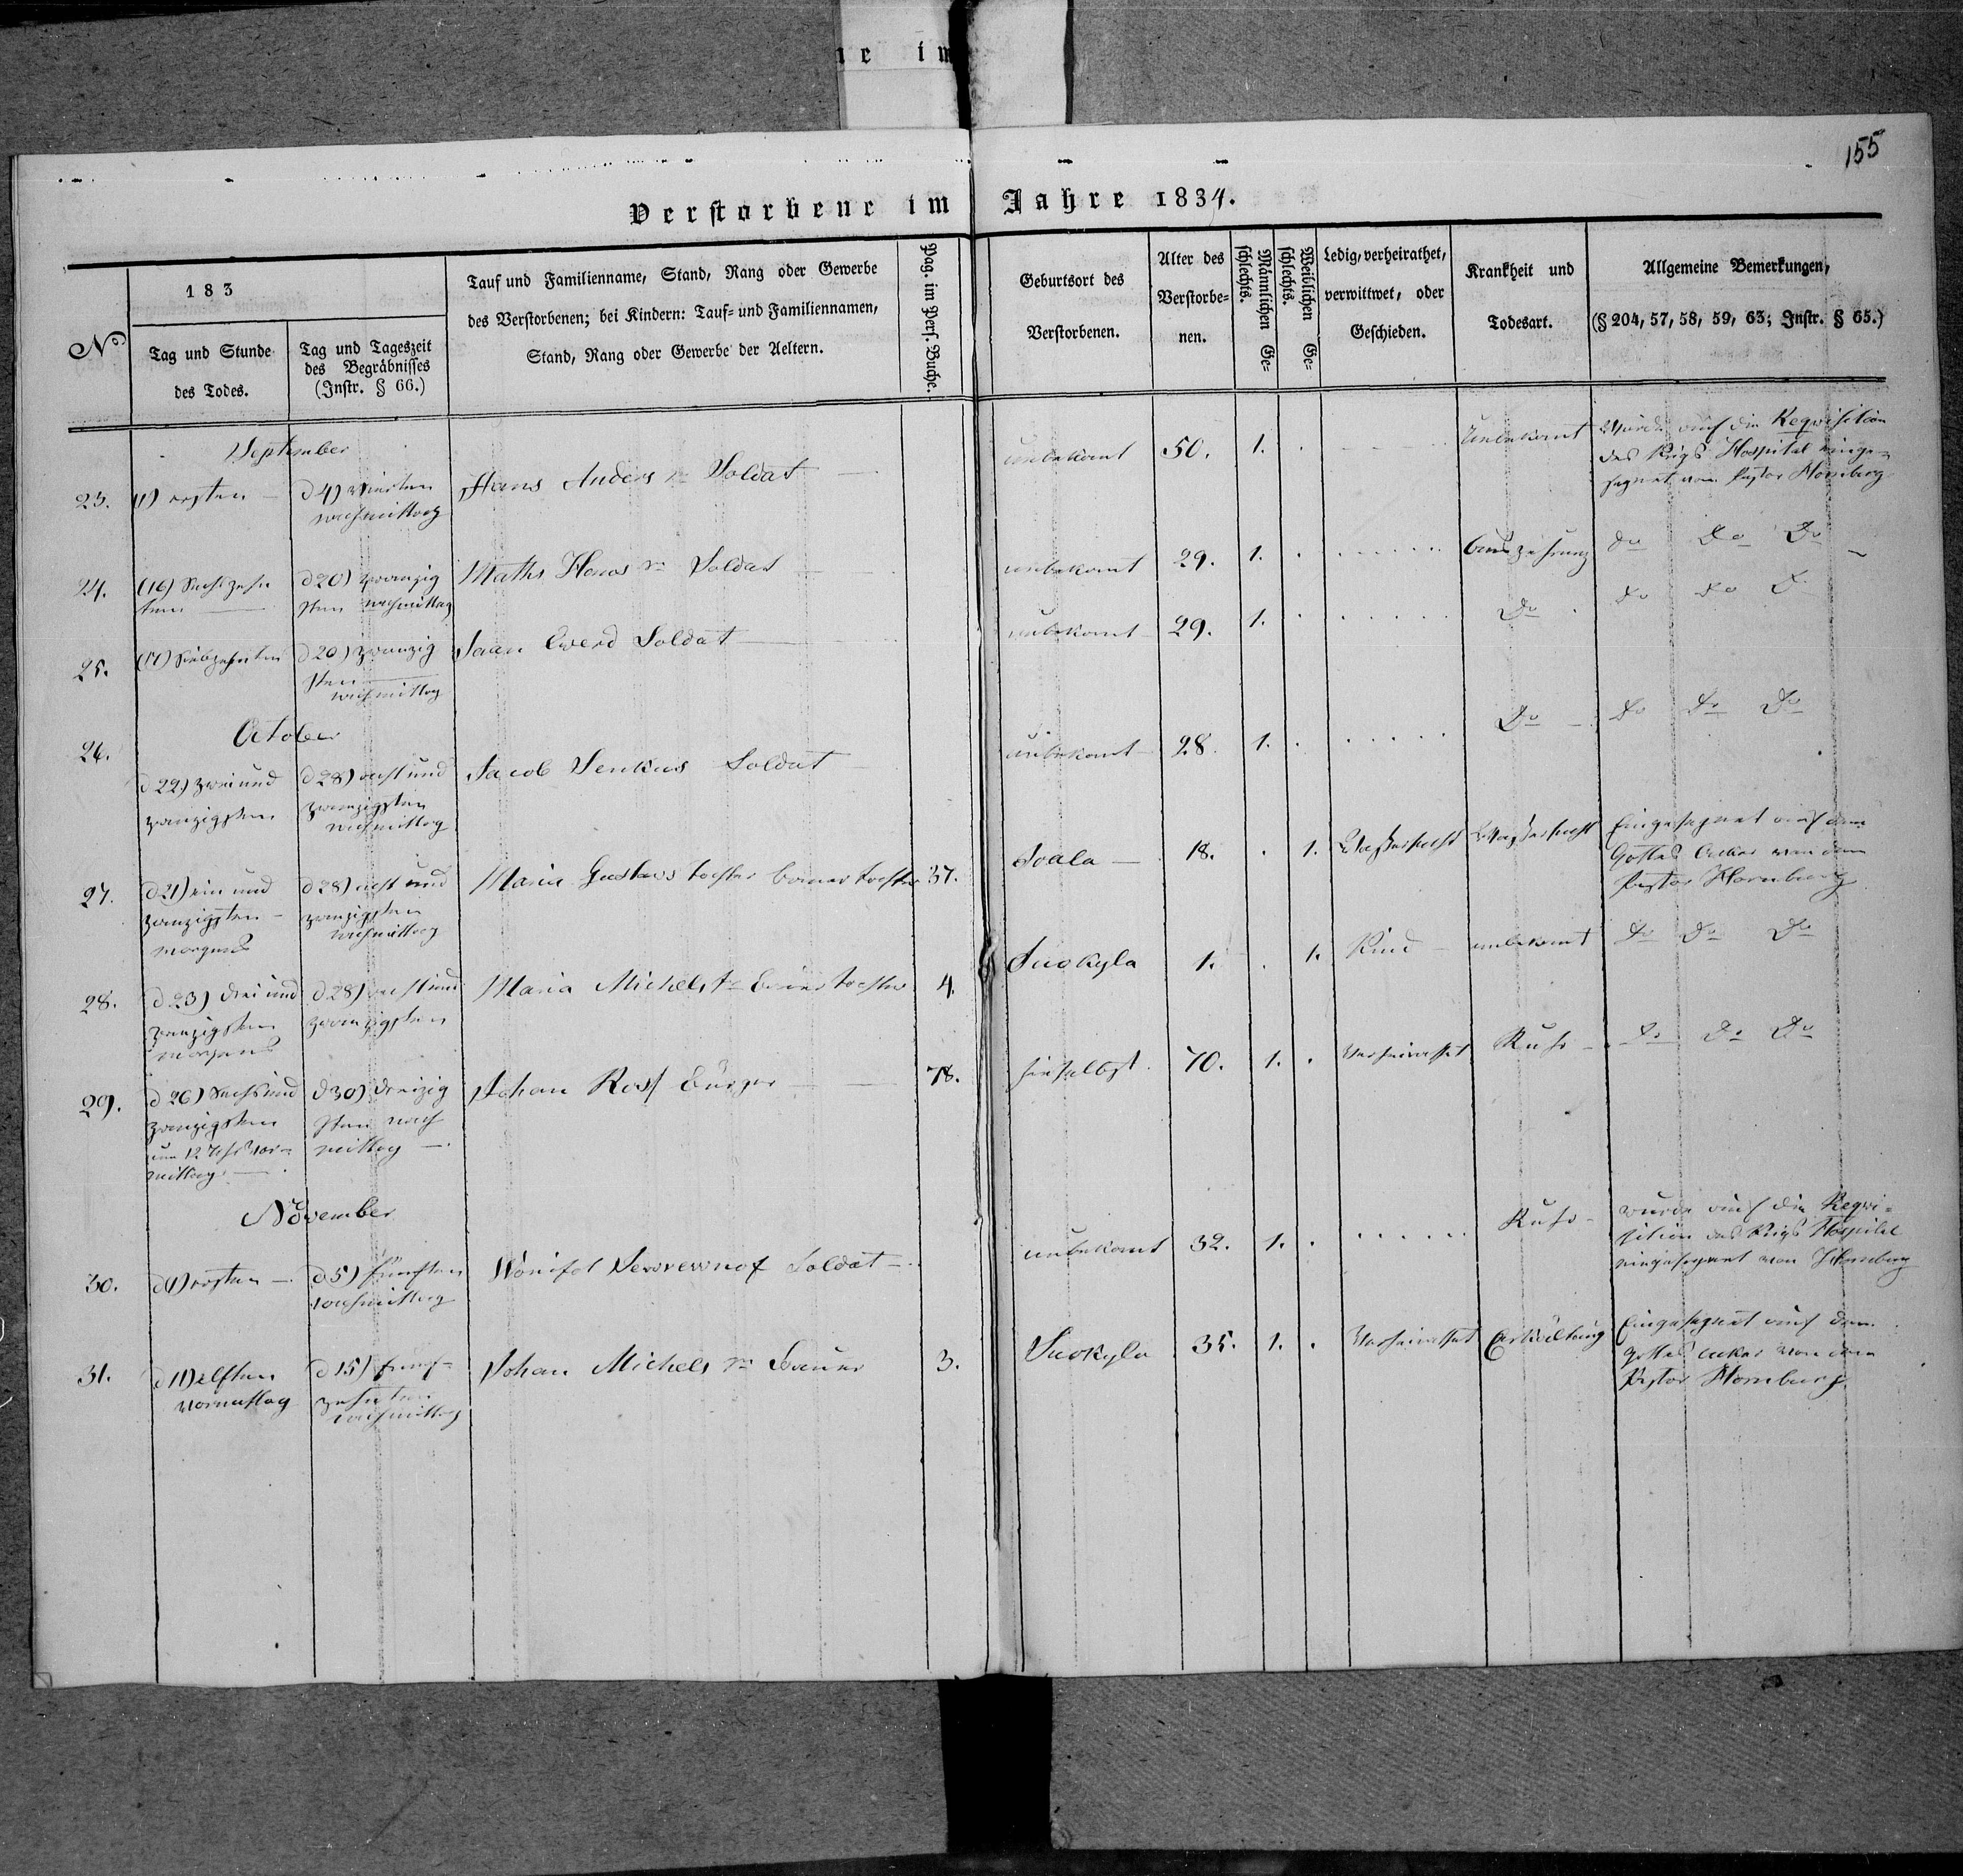 ne im
155
Verstorbene im Jahre 1834.
No
183
Tag und Stunde
des Todes.
Tag und Tageszeit
des Begräbnisses
(Instr. § 66.)
Tauf und Familienname, Stand, Rang oder Gewerbe
des Verstorbenen; bei Kindern: Tauf- und Familiennamen,
Stand, Rang oder Gewerbe der Aeltern.
Pag. im Pers. Buche.
Geburtsort des
Verstorbenen.
Alter des
Verstorbe-
nen.
Männlichen Ge-
schlechts.
Weiblichen Ge-
schlechts.
Ledig, verheirathet,
verwittwet, oder
Geschieden.
Krankheit und
Todesart.
Allgemeine Bemerkungen,
(§ 204, 57, 58, 59, 63; Instr. § 65.)
September
23.
(1) ersten
d 4) vierten
nachmittag
Hans Anders Soldat
unbekant
50.
1.
Unbekant
Wurde auf die Reqvisition
des Krigs Hospital einge-
segnet von Pastor Hornberg
24.
(16) Sechszehn
ten
d 20) zwanzig
sten nachmittag
Maths Hans Soldat
unbekant
29.
1.
Auszehrung
do Do Do
25.
(17) Siebzehnten
d 20) zwanzig
sten
nachmittag
Jaan Ewerd Soldat
unbekant
29.
1.
Do
Do Do Do
October
26.
d 22) zwei und
zwanzigsten
d 28) acht und
zwanzigsten
nachmittag
Jacob Soldat
unbekant
28.
1.
Do
Do Do Do
27.
d 21) ein und
zwanzigsten
morgens
d 28) acht und
zwanzigsten
nachmittag
Maria Gustavs tochter Bauer tochter
37.
18.
1.
Wassersucht
Wassersucht
Eingesegnet auf dem
Gottes Acker von dem
Pastor Hornberg
28.
d 23) drei und
zwanzigsten
morgens
d 28) acht und
zwanzigsten
Maria Michels Bauer tochter
4.
Suokyla
1.
1.
Kind
unbekant
Do Do Do
29.
d 26) Sechs und
zwanzigsten
um 12 Uhr Vor-
mittag
d 30) dreizig
sten nach
mittag
Johan Bürger
78.
hieselbst.
70.
1.
Verheirathet
Ruhr
Do Do Do
November
30.
d 1) ersten
d 5) fünften
nachmittag
Soldat
unbekant
32.
1.
Ruhr
wurde auf die Reqvi-
sition des Krigs Hospital
eingesegnet von Hornberg
31.
d 11) elften
vormittag
d 15) funf-
zehnten
nachmittag
Johan Michels Bauer
3.
Suokyla
35.
1.
Verheirathet
Erkältung
Eingesegnet auf dem
Gottes acker von dem
Pastor Hornberg